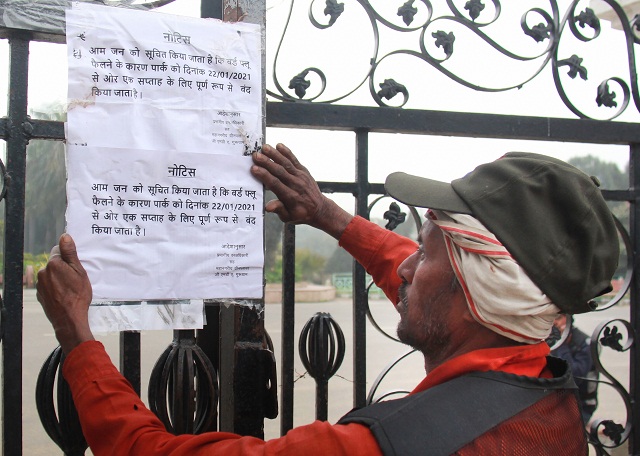 नोटिस
आम जन को सूचित किया जाता है कि बर्ड फ्लू
फैलने के कारण पार्क को दिनांक 22/01/2021
से ओर एक सप्ताह के लिए पूर्ण रूप से बंद
किया जाता है।
आदेशानुसार
नोटिस
आम जन को सूचित किया जाता है कि बर्ड फ्लू
फैलने के कारण पार्क को दिनांक 22/01/2021
से ओर एक सप्ताह के लिए पूर्ण रूप से बंद
किया जाता है।
आदेशानुसार